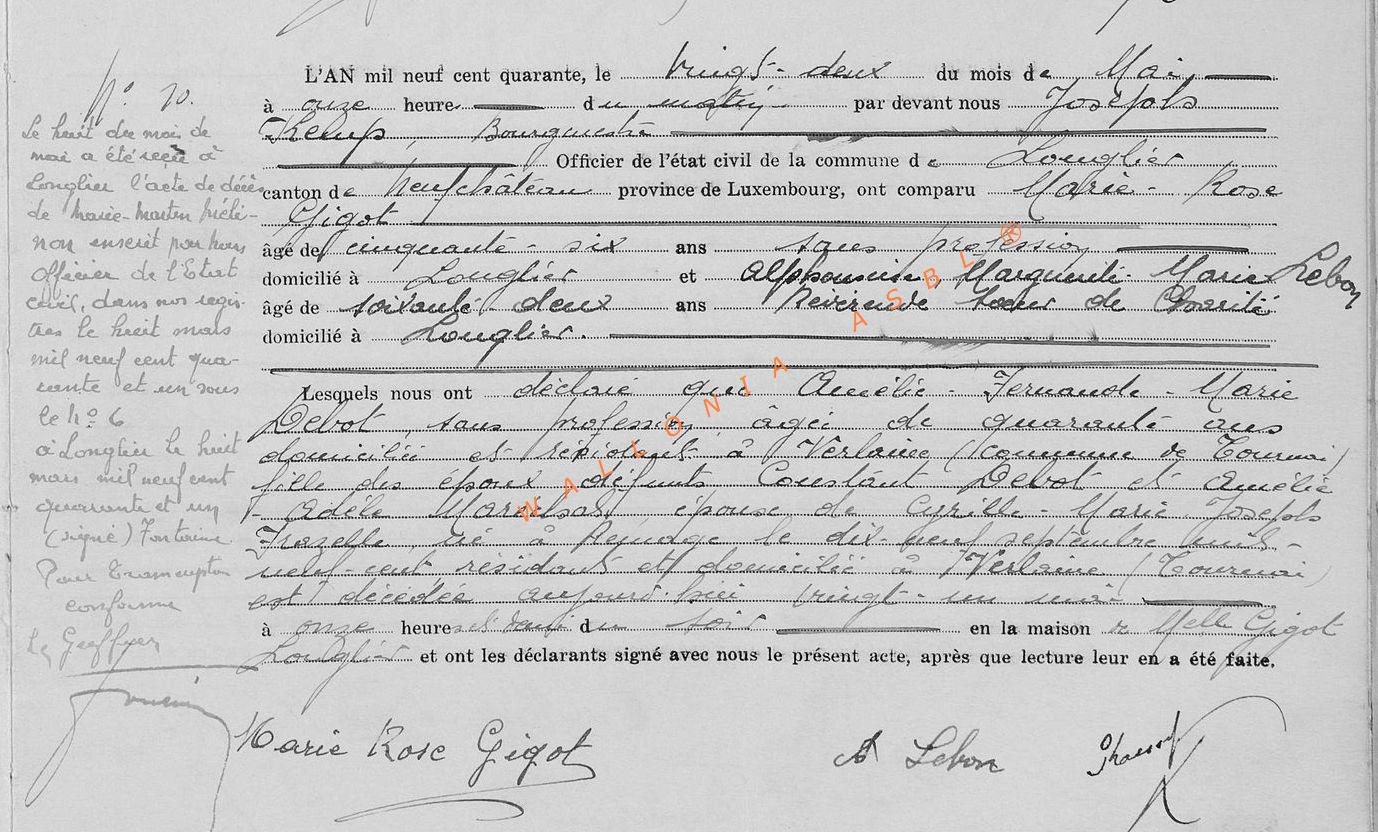 N° 10.
Le huit du mois de
mai a été reçu à
Longlier l'acte de décès
de Marie-Martin Méli-
non inscrit par nous
Officier de l'Etat
civil, dans nos regis-
tres le huit mars
mil neuf cent qua-
rante et un sous
le n° 6
à Longlier le huit
mars mil neuf cent
quarante et un
(signé) Fontaine
Pour transcription
conforme
Le Greffier
L'AN mil neuf cent quarante, le vingt-deux du mois de Mai,
à onze heure du matin par devant nous Joseph
Kemp, Bourgmestre
Officier de l'état civil de la commune de Longlier
canton de Neufchâteau province de Luxembourg, ont comparu Marie-Rose
Gigot
âgé de cinquante-six ans sans profession
domicilié à Longlier et Alphonsine, Marguerite Marie Lebon
âgé de soixante deux ans Révérende Sœur de Charité
domicilié à Longlier.
Lesquels nous ont déclaré que Amélie-Fernande-Marie
Debot sans profession, âgée de quarante ans
domiciliée et résidant à Verlaine (Commune de Tournai)
fille des époux défunts Constant Debot et Amélie
- Adèle épouse de Cyrille-Marie Joseph
Frozelle, né à le dix-neuf septembre mil-
neuf-cent résidant et domiciliée à Verlaine (Tournai)
est décédée aujourd'hui vingt-un mai
à onze heures et demi du soir en la maison Melle Gigot
Longlier et ont les déclarants signé avec nous le présent acte, après que lecture leur en a été faite.
Marie Rose Gigot
A Lebon
WALLONIA ASBL ®